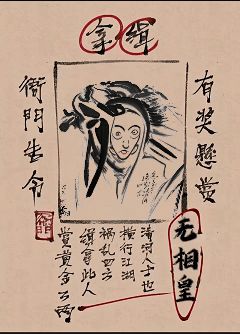 缉拿
有奖懸赏
衙門令
无相皇
清河人士也
横行江湖
祸乱四方
缉拿此人
赏黄金两